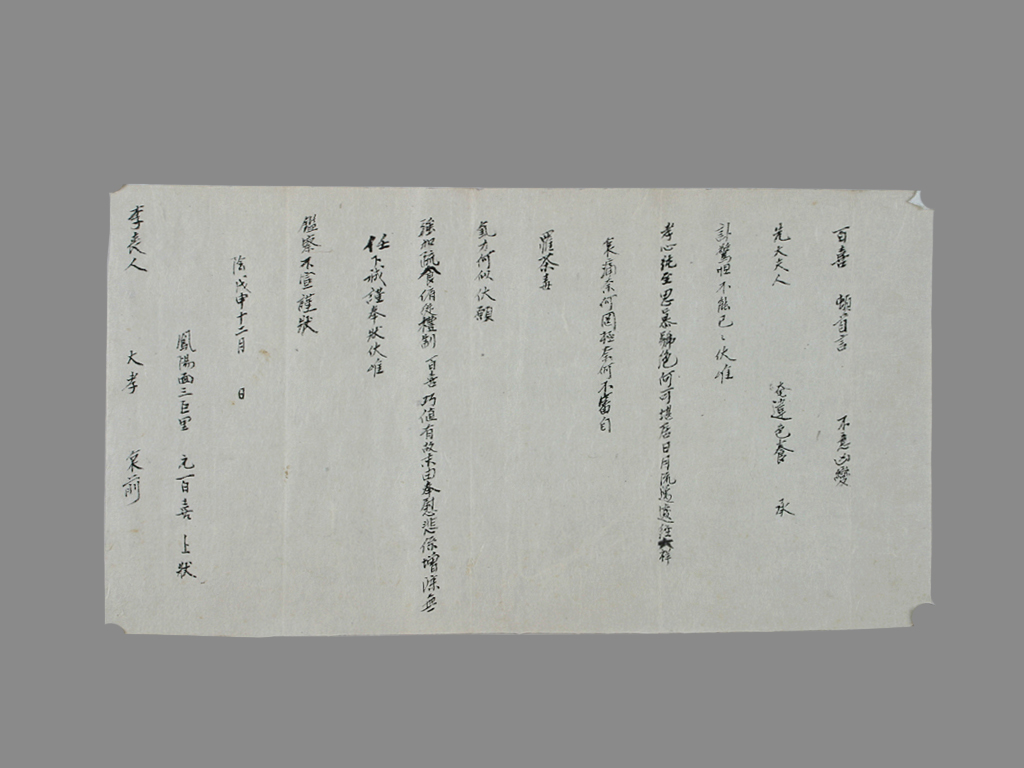 百喜 頓首言 不意凶變
先大夫人 奄違色養 承
訃驚怛不能已〻伏惟
孝心純至思慕號絶何可堪居日月流邁遽經大祥
哀痛奈何罔極奈何不審自
罹荼毒
氣力何似伏願
强加疏食俯從禮制 百喜 巧値有故未由奉慰悲係增深無
任下誠謹奉狀伏惟
鑑察不宣謹狀
陰戊申十二月 日
鳳陽面三巨里 元百喜 上狀
李喪人 大孝 哀前